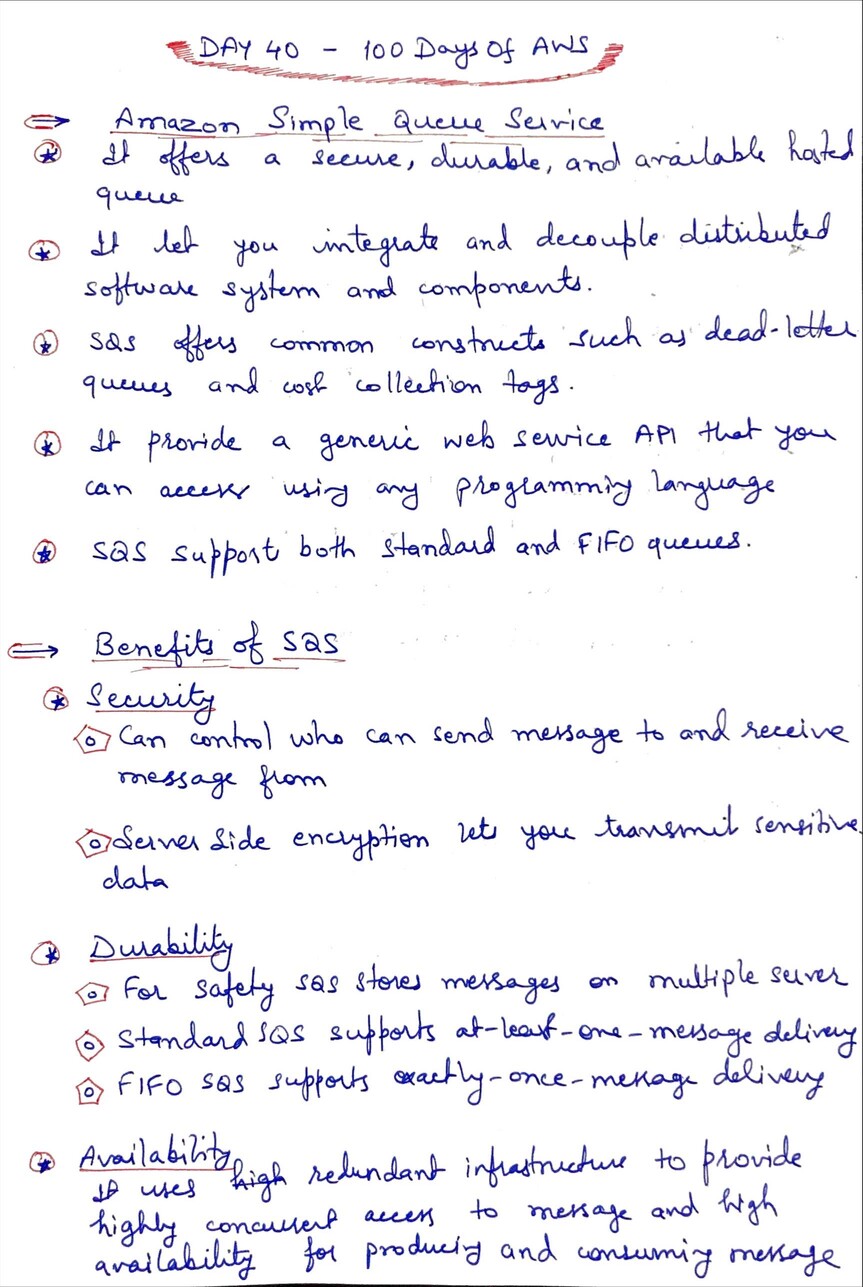 DAY 40 - 100 Days Of AWS
Amazon Simple Queue Service
It offers a secure, durable, and available hosted
queue
It let you integrate and decouple distributed
software system and components.
SQS offers common constructs such as dead-letter
queues and cost collection tags.
It provide a generic web service API that you
can access using any programming language
SQS support both standard and FIFO queues.
Benefits of SQS
Security
Can control who can send message to and receive
message from
Server side encryption lets you transmit sensitive
data
Durability
For safety SQS stores messages on multiple server
Standard SQS supports at-least-one-message delivery
FIFO SQS supports exactly-once-message delivery
Availability
It uses high redundant infrastructure to provide
highly concurrent access to message and high
availability for producing and consuming message